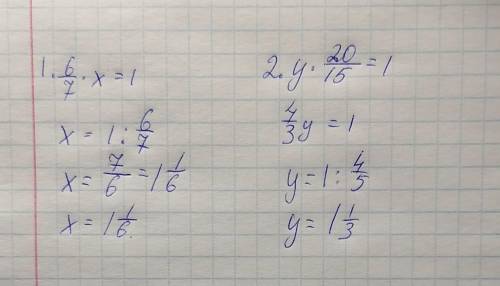 1. 6/7 · x = 1
x = 1 : 6/7
x = 7/6 = 1 1/6
x = 1 1/6.
2. y · 20/15 = 1
4/3 y = 1
y = 1 : 4/5
y = 1 1/3